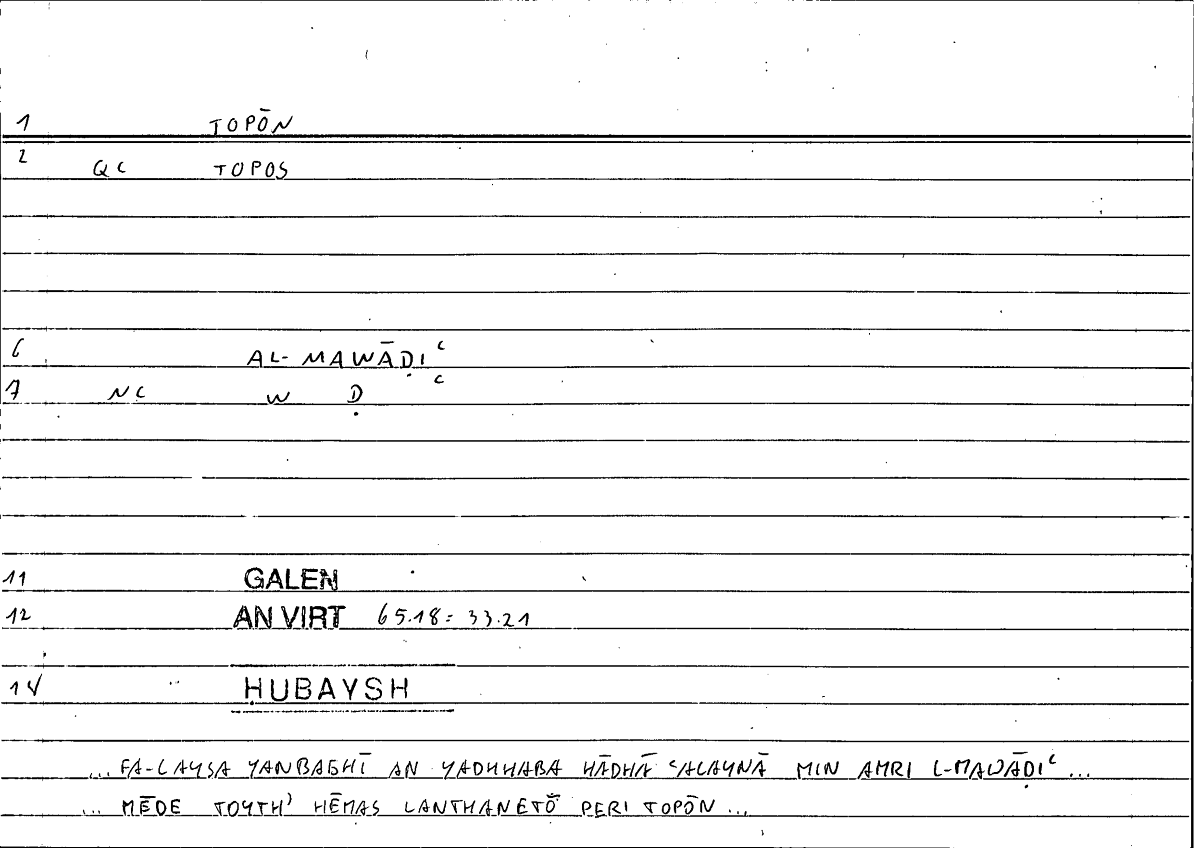 1 TOPŌN
2 QC TOPOS
6 AL-MAWĀḌIʿ
7 NC W Ḍ ʿ
11 GALEN
12 AN VIRT 65.18 = 33.21
14 ḤUBAYSH
... FA-LAYSA YANBAGHĪ AN YADHHABA HĀDHĀ ʿALAYNĀ MIN AMRI L-MAWĀḌIʿ ...
... MĒDE TOYTH' HĒMAS LANTHANETŌ PERI TOPŌN ...